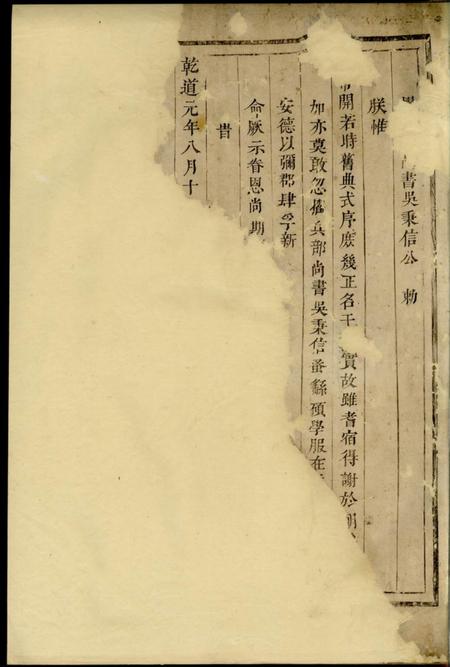 書吳秉信公勅
朕惟
開若時舊典式序庶幾正名干實故雖耆宿得謝於
加亦莫敢忽舊兵部尚書吳秉信蚤繇碩學服在
安德以彌郡肆孚新
命厥示眷恩尚期
旹
乾道元年八月十